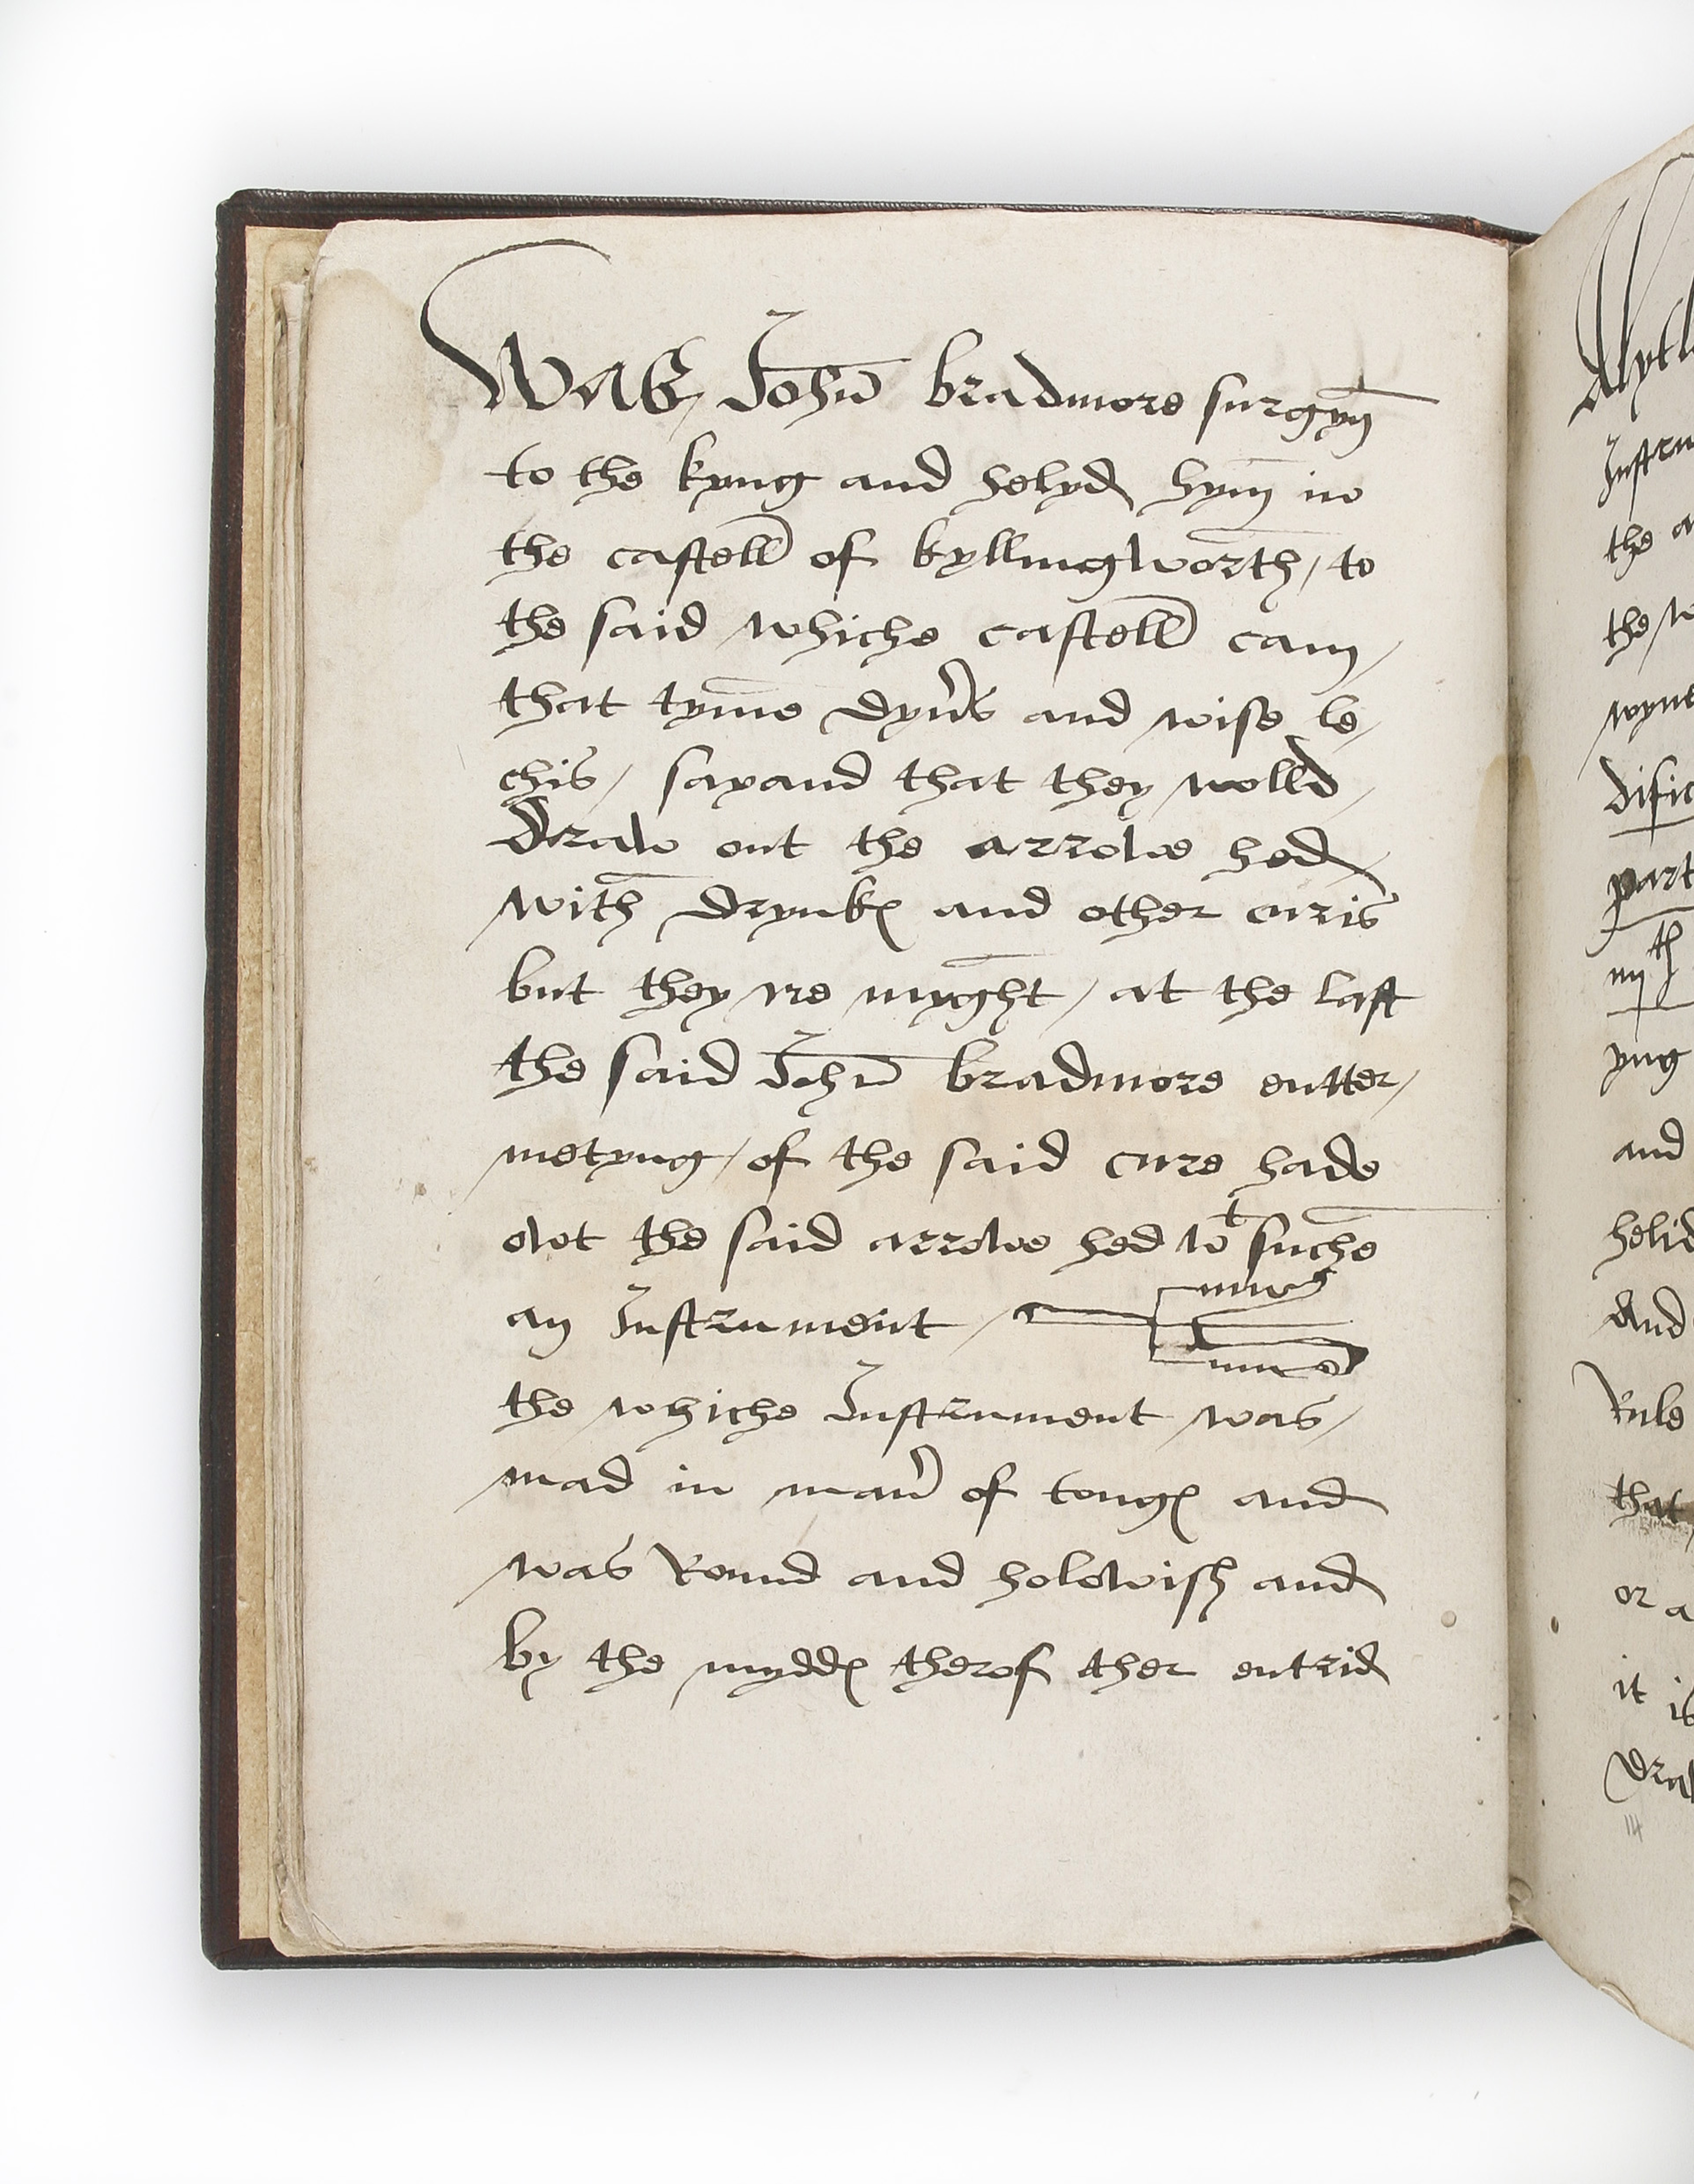 Was / John̄ bradmore surgyn̄
to the kyng and helyd hym̄ in
the castell of kyllingworth̄ / to
the said whiche castell cam /
that tym̄e dyu's and wise le /
chis / sayand that they wolld /
draw out the arrowe hed /
with̄ drynkꝭ and other curis
but they ne myḡht / at the last
the said John̄ bradmore entter /
metyng / of the said cure hade
owt the said arrowe hed wᵗ suche
an Instrument /
the whiche Instrument was /
mad in man' of tongꝭ and
was Round and holowish and
by the myddꝭ therof ther entrid
Instru
the a
the w
wyne
dific
part
iiijth
yng
and
helid
And
Rule
that
or a
it is
draw
14